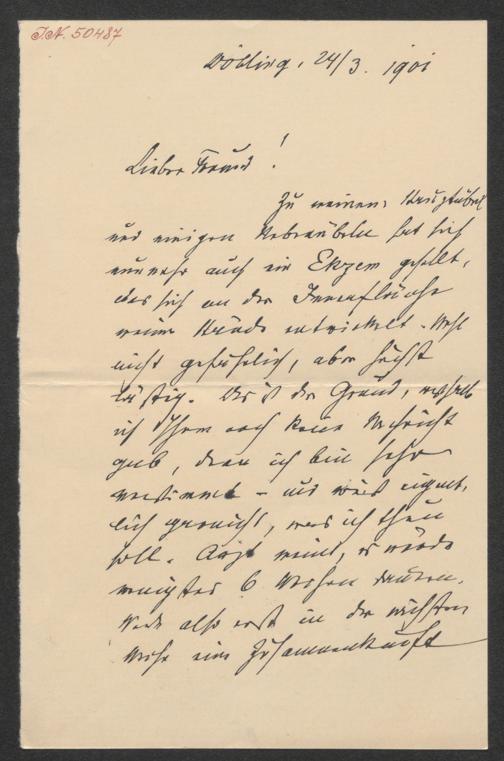 J.N. 50487
Döbling, 24/3. 1901
Lieber Freund!
Zu meinem Hauptübel
und einigen Nebenübeln hat sich
nunmehr auch ein Ekzem gesellt,
das sich an der Innenfläche
meiner Hände entwickelt. Wohl
nicht gefährlich, aber höchst
lästig. Das ist der Grund, weshalb
ich Ihnen noch keine Nachricht
gab, denn ich bin sehr
verstimmt – und weiß eigent-
lich gar nicht, was ich thun
soll. Arzt meint, es würde
wenigstens 6 Wochen dauern.
Werde also erst in der nächsten
Woche eine Zusammenkunft